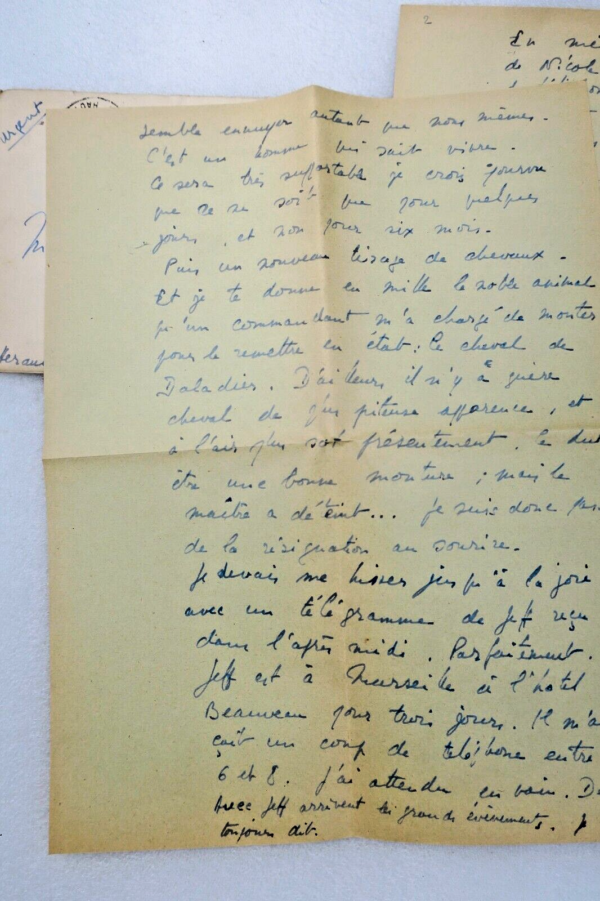 2
En mê
de Nicole
urgent
semble ennuyer autant que nous mêmes.
C'est un homme qui sait vivre.
Ce sera très supportable je crois pourvu
que ce ne soit que pour quelques
jours, et non pour six mois.
Puis un nouveau tirage de chevaux.
Et je te donne en mille le noble animal
qu'un commandant m'a chargé de monter
pour le remettre en état : le cheval de
Daladier. D'ailleurs il n'y a guère
cheval de plus piteuse apparence, et
à l'air plus sot présentement. Ce dut
être une bonne monture ; mais le
maître a déteint... Je suis donc pas
de la résignation au sourire.
Je devais me hisser jusqu'à la joie
avec un télégramme de Jeff reçu
dans l'après midi. Parfaitement.
Jeff est à Marseille à l'hôtel
Beauveau pour trois jours. Il m'a
çait un coup de téléphone entre
6 et 8. J'ai attendu en vain. D
avec Jeff arrivent les grands évènements. Je
toujours dit.